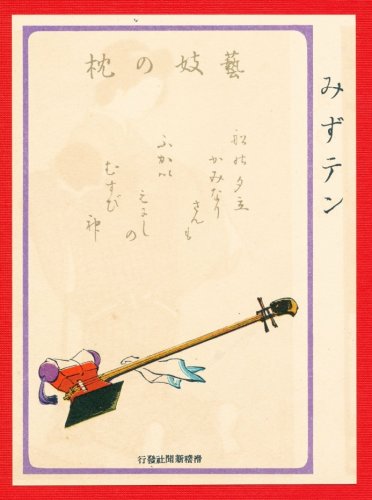 みずテン
藝妓の枕
船の夕立
かみなり
さんも
ふかい
えにし
の
むすび
神
滑稽新聞社發行